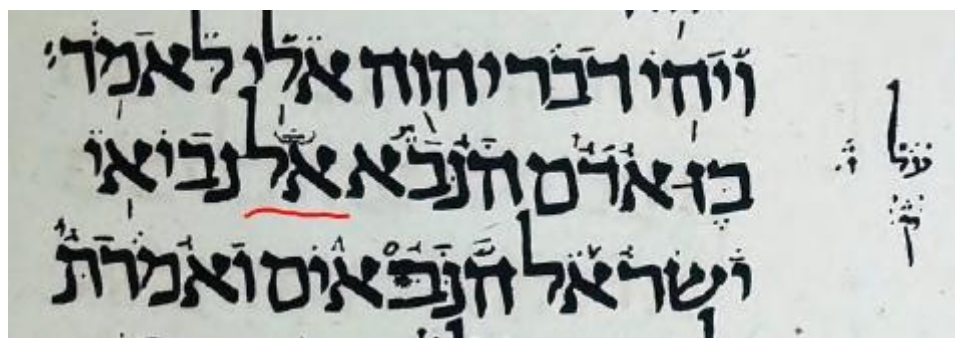 ויהי דבר יהוה אלי לאמר׃
בן אדם הנבא אל נביאי
ישראל הנבאים ואמרת
על
ק